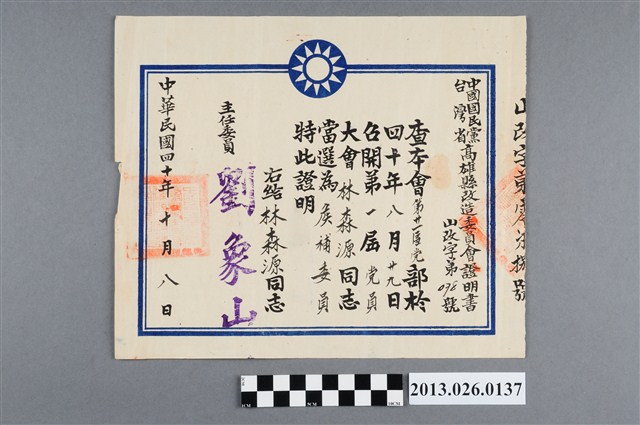 中國國民黨台灣省高雄縣改造委員會證明書
山改字第098號
查本會第廿一區黨部於
四十年八月廿九日
召開第一屆党員
大會林森源同志
當選為候補委員
特此證明
右給林森源同志
主任委員
劉象山
中華民國四十年十月八日
2013.026.0137